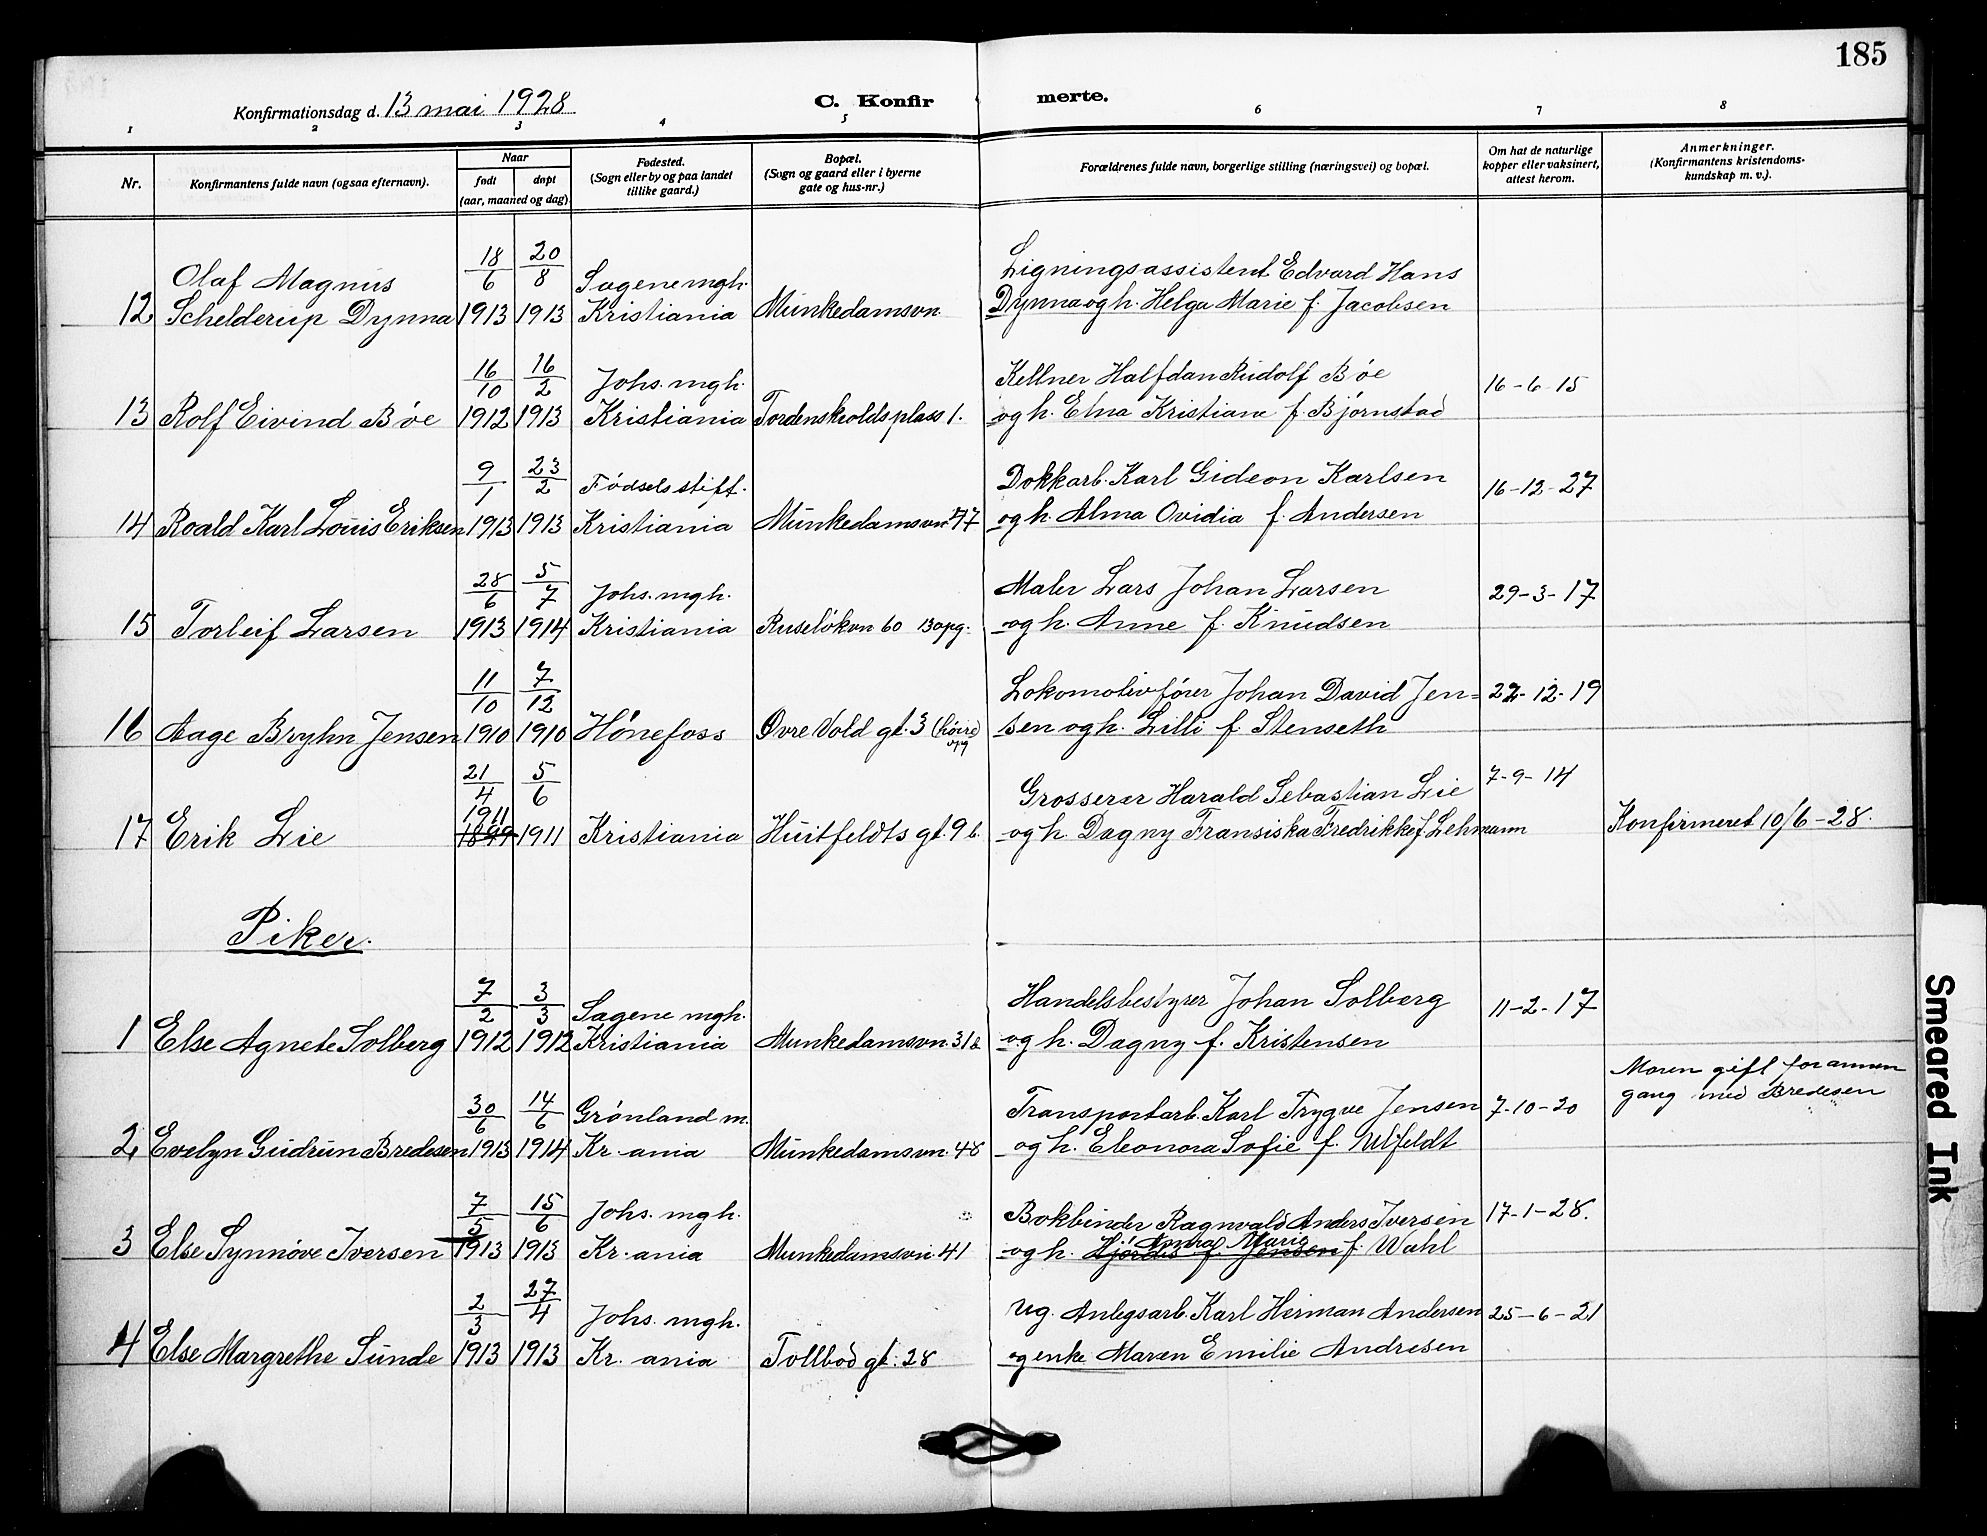 185
Konfirmationsdag d. 13 mai 1928
C. Konfir merte.
1 2 3 4 5 6 7 8
Nr.
Konfirmantens fulde navn (ogsaa efternavn).
Naar
født døpt
(aar, maaned og dag).
Fødested.
(Sogn eller by og paa landet
tillike gaard.)
Bopæl.
(Sogn og gaard eller i byerne
gate og hus-nr.)
Forældrenes fulde navn, borgerlige stilling (næringsvei) og bopæl.
Om hat de naturlige
kopper eller vaksinert,
attest herom.
Anmerkninger.
(Konfirmantens kristendoms-
kundskap m. v.).
18/6 20/8
Olaf Magnus Sagene mgh. Ligningsassistent Edvard Hans
12 Schelderup Dynna 1913 1913 Kristiania Munkedamsvn. Dynna og h. Helga Marie f. Jacobsen
16/10 16/2 Johs. mgh. Kellner Halfdan Rudolf Bøe 16-6-15
13 Rolf Eivind Bøe 1912 1913 Kristiania Tordenskiolds plass 1. og h. Elna Kristiane f. Bjørnstad
9/1 23/2 Fødselsstift. Dokkarb. Karl Gideon Karlsen 16-12-27
14 Roald Karl Louis Eriksen 1913 1913 Kristiania Munkedamsvn. 97 og h. Alma Ovidia f. Andersen
28/6 5/7 Johs. mgh. Maler Lars Johan Larsen 29-3-17
15 Torleif Larsen 1913 1914 Kristiania Ruseløkvn 60 13 opg. og h. Anne f. Knudsen
11/10 7/12 Lokomotivfører Johan David Jen= 22-12-19
16 Aage Bryhn Jensen 1910 1910 Hønefoss Øvre Vold gt. 3 (høire opg sen og h. Lilli f. Stenseth
21/4 5/6 Grosserer Harald Sebastian Lie 7-9-14
1911
17 Erik Lie 1899 1911 Kristiania Huitfeldts gt. 9 b. og h. Dagny Fransiska Fredrikke f. Lehmann Konfirmeret 10/6-28.
Piker.
7/2 3/3 Sagene mgh. Handelsbestyrer Johan Solberg 11-2-17
1 Else Agnete Solberg 1912 1912 Kristiania Munkedamsvn. 31 og h. Dagny f. Kristensen
Moren gift for annen
30/6 14/6 Grønland m. Transportarb. Karl Trygve Jensen 7-10-20 gang med Bredesen
2 Evelyn Gudrun Bredesen 1913 1914 Kr.ania Munkedamsvn. 48 og h. Eleonora Sofie f. Ulfeldt
7/5 15/6 Johs. mgh. Bokbinder Ragnvald Anders Iversen 17-1-28.
Anna Marie
3 Else Synnøve Iversen 1913 1913 Kr.ania Munkedamsvn. 41 og h. Hjørdis f. Jensen f. Wahl
2/3 27/4 Johs. mgh. Ug. Anlegsarb. Karl Herman Andersen 25-6-21
4 Else Margrethe Sunde 1913 1913 Kr.ania Tollbod gt. 28 og enke Maren Emilie Andresen
Smeared Ink